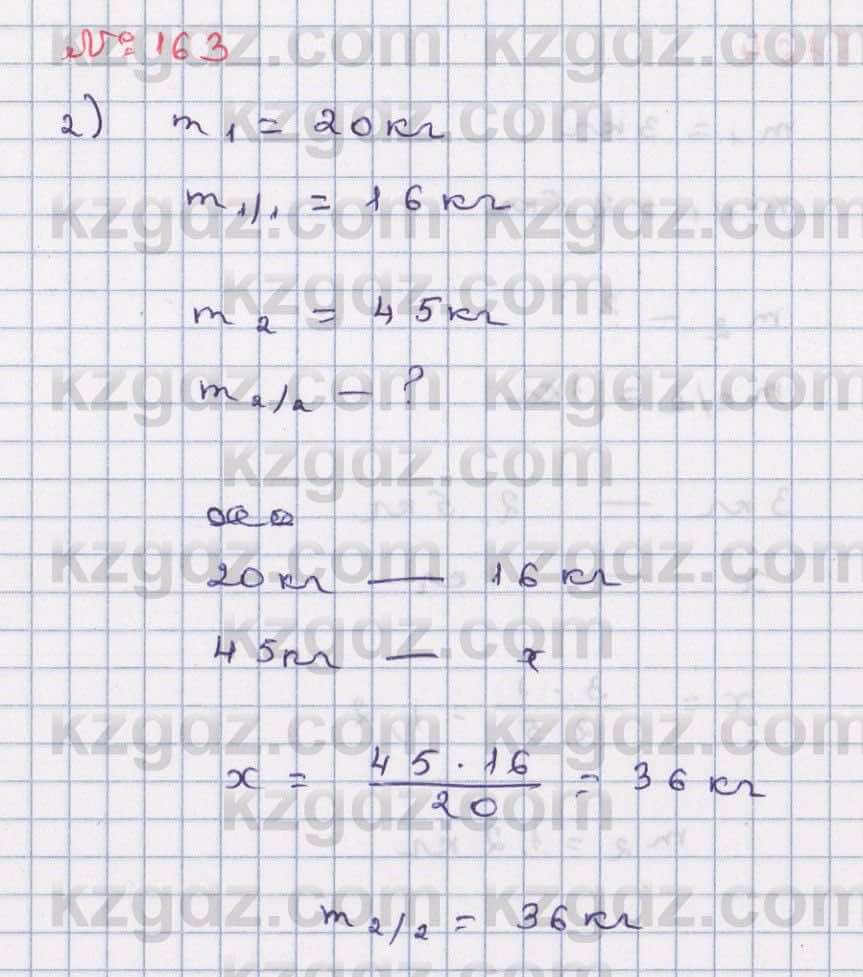 № 163
2) m₁ = 20 кг
m₁/₁ = 16 кг
m₂ = 45 кг
m₂/₂ — ?
20 кг — 16 кг
45 кг — x
x = 45 · 16 / 20 = 36 кг
m₂/₂ = 36 кг
kzgdz.com